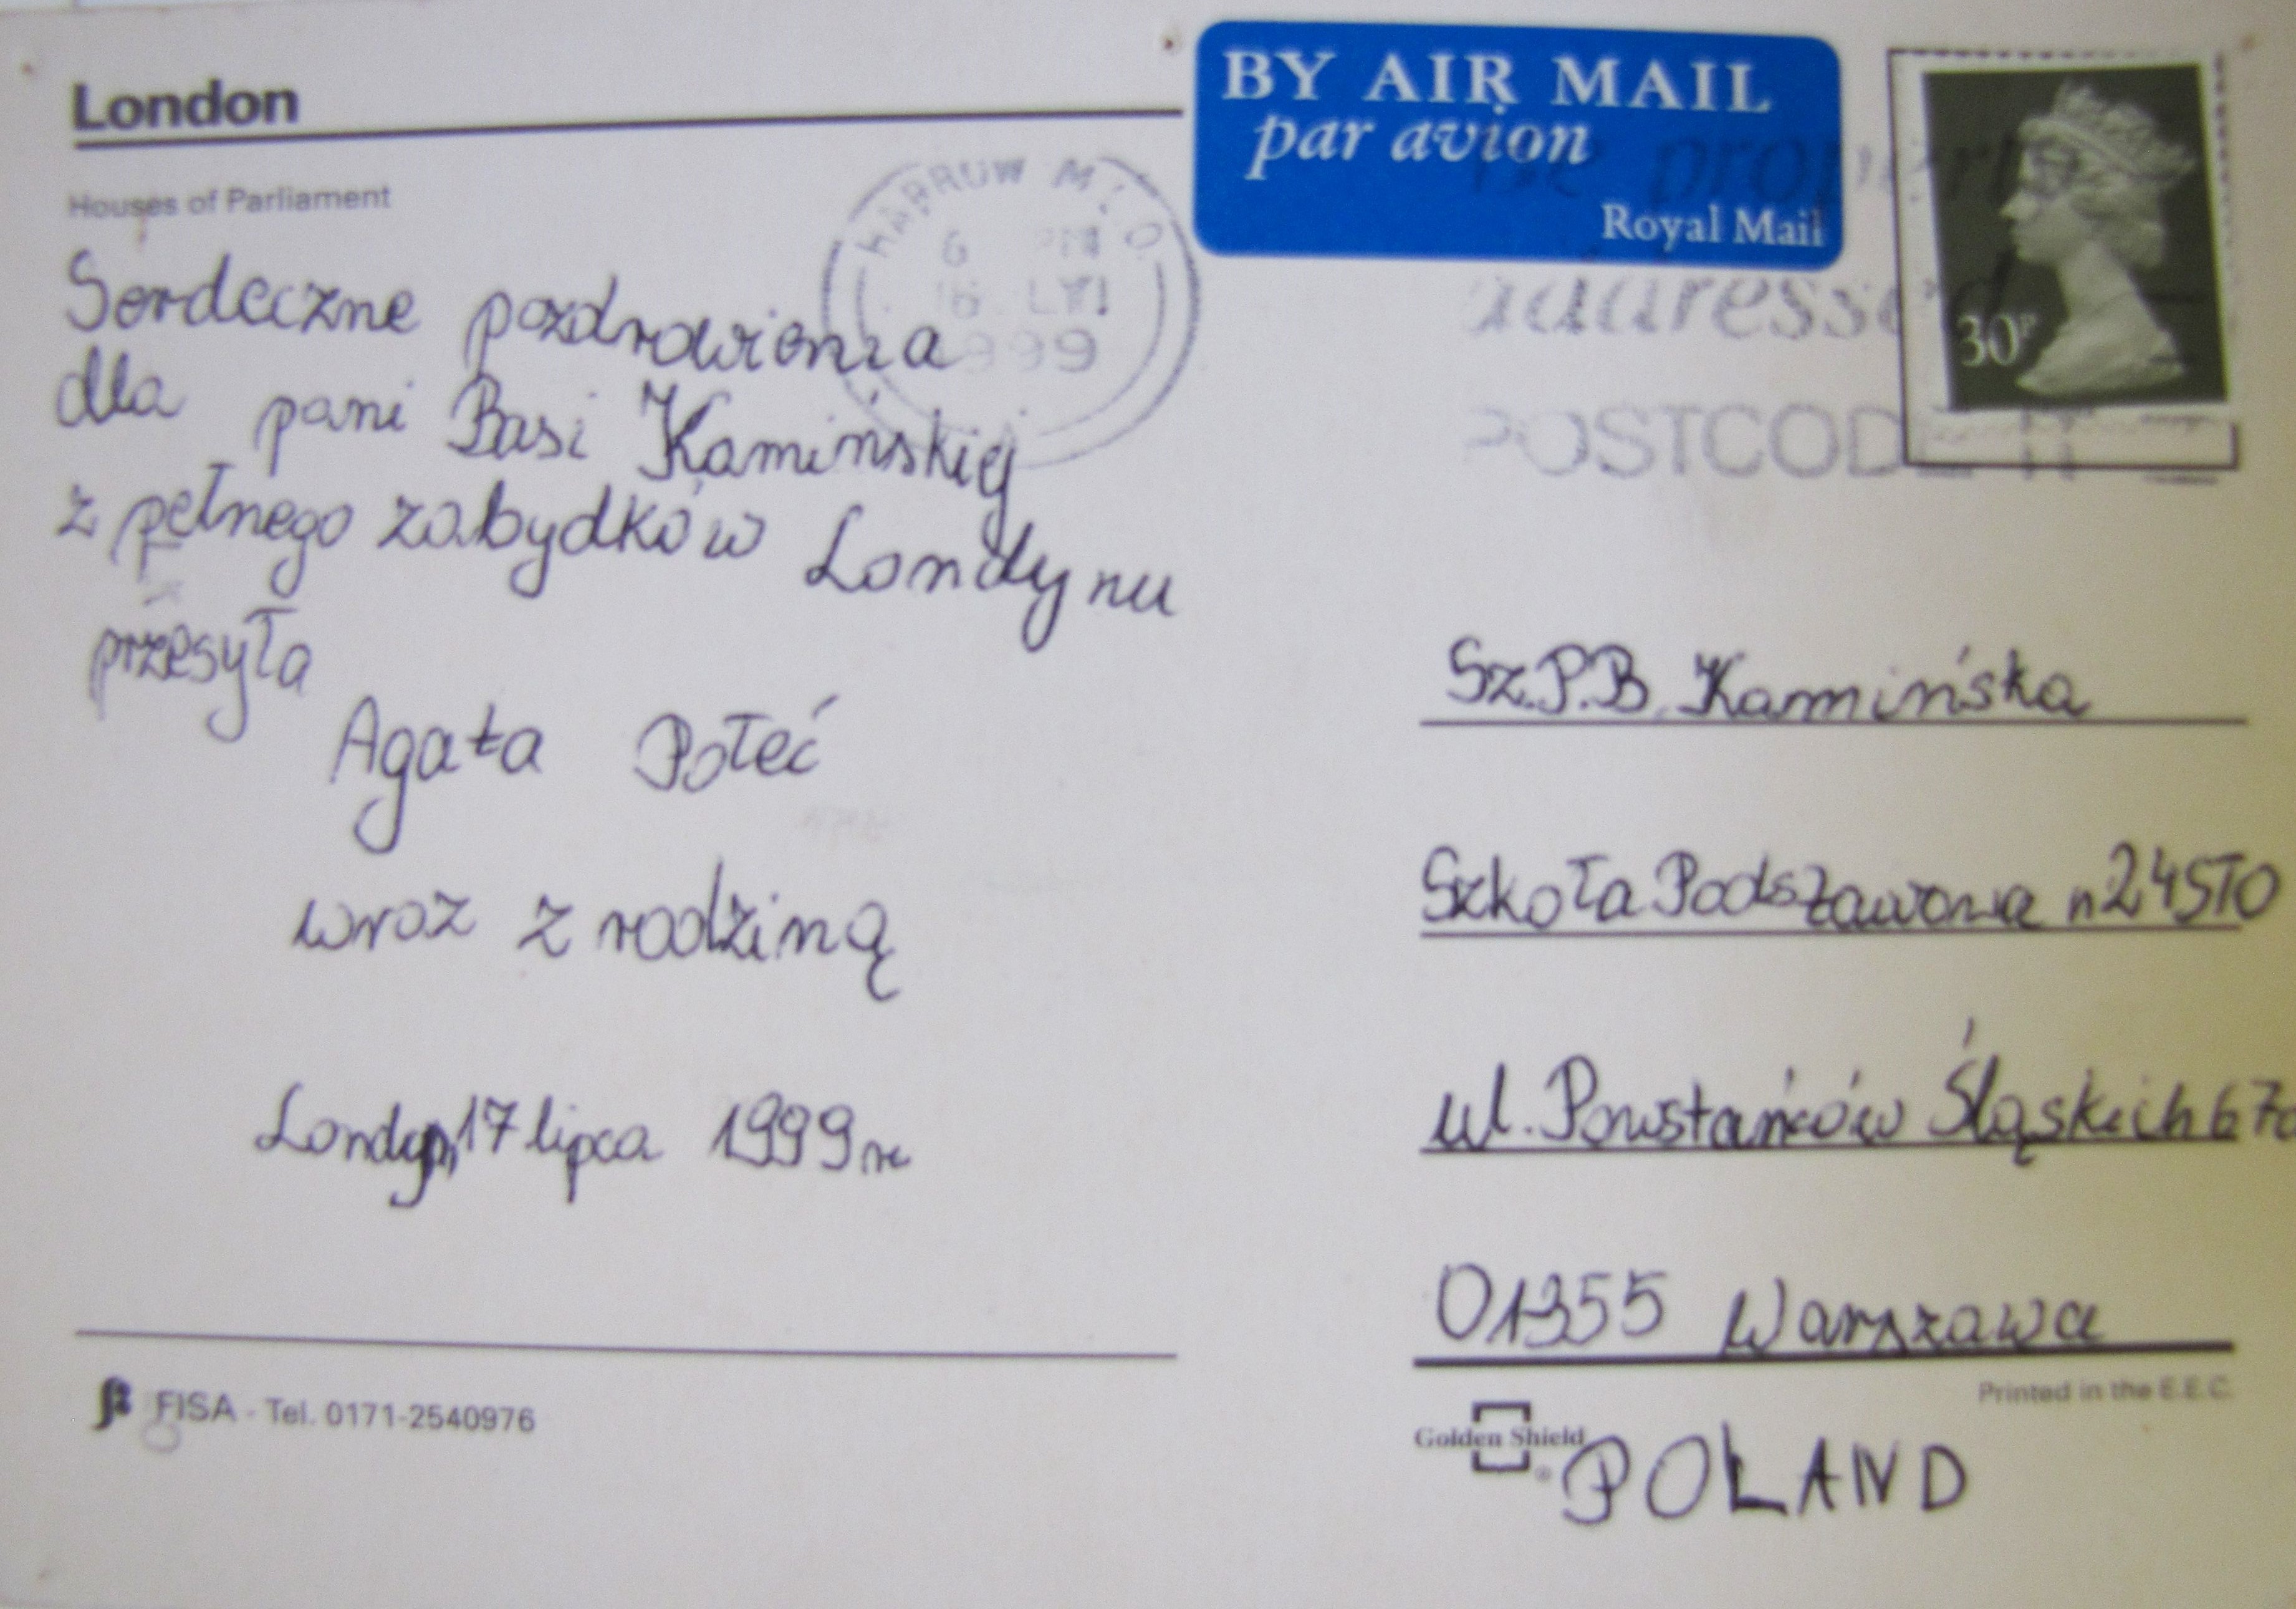 London
Houses of Parliament
Serdeczne pozdrowienia
dla pani Basi Kamińskiej
z pełnego zabydków Londynu
przesyła
Agata Połeć
wraz z rodziną
Londyn, 17 lipca 1999r
FISA - Tel. 0171-2540976
HARROW M.L.O.
6 PM
1999
BY AIR MAIL
par avion
Royal Mail
30P
addressed
POSTCODE IT
Sz.P.B. Kamińska
Szkoła Podstawowa
ul. Powstańców Śląskich 67a
01355 Warszawa
Printed in the E.E.C.
Golden Shield
POLAND